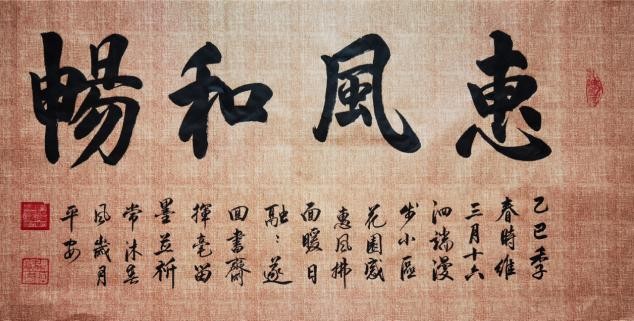 惠風和暢
乙巳季
春時維
三月十六
泗端漫
步小區
花園感
惠風拂
面暖日
融〻遂
回書齋
揮毫留
墨並祈
常沐
風歲月
平安